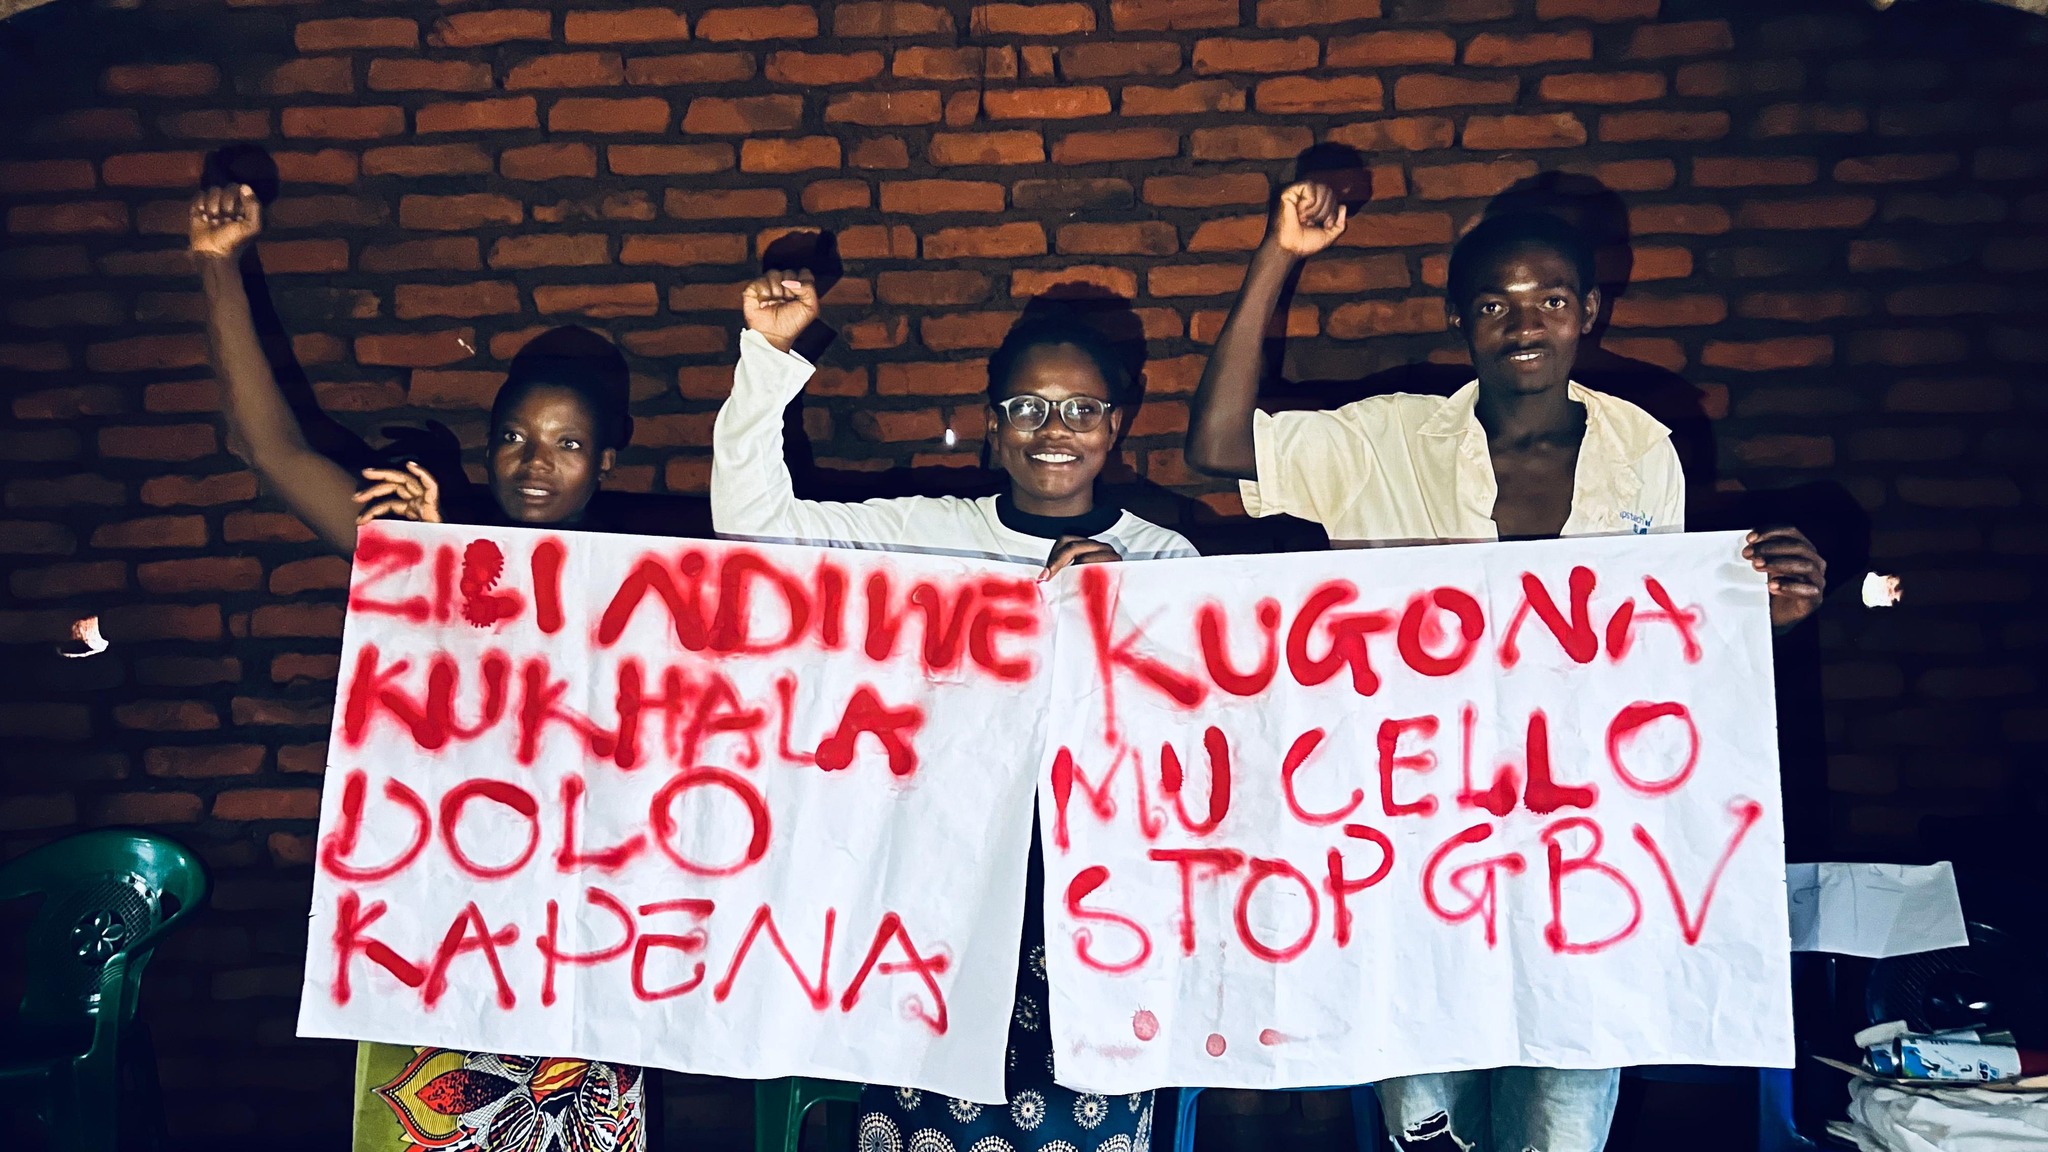 ZILI NDIWE
KUKHALA
DOLO
KAPENA
KUGONA
MU CELLO
STOP GBV